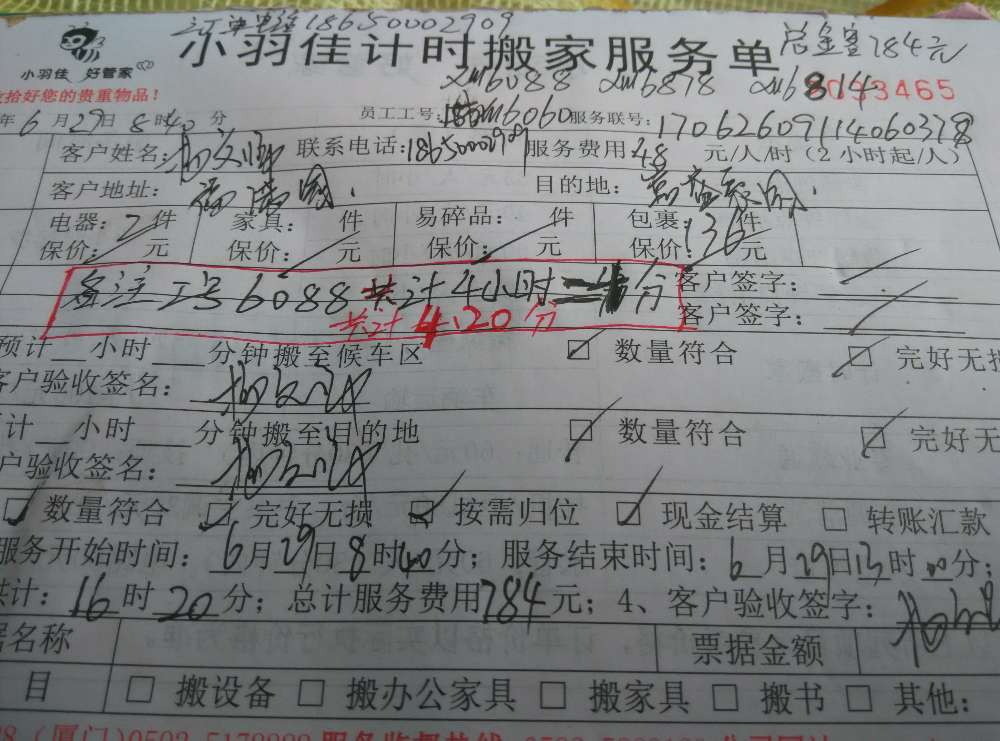 订单电话18650002909
小羽佳计时搬家服务单 总金额784元
小羽佳 好管家
xm6088 xm6878 xm6814
拾好您的贵重物品！ 3465
年6月29日8时40分 员工工号：xm6060 服务联号：17062609114060378
客户姓名： 联系电话：18650002909 服务费用：48元/人/时（2小时起/人）
客户地址： 目的地：
电器：2件 家具： 件 易碎品： 件 包裹：36件
保价： 元 保价： 元 保价： 元 保价： 元
备注工号6088共计4小时 分 客户签字：
共计4.20分 客户签字：
预计__小时____分钟搬至候车区 数量符合 完好无损
客户验收签名：
计__小时____分钟搬至目的地 数量符合 完好无
户验收签名：
数量符合 完好无损 按需归位 现金结算 转账汇款
服务开始时间：6月29日8时40分；服务结束时间：6月29日13时00分；
共计：16时20分；总计服务费用784元；4、客户验收签字：
据名称 票据金额
目 搬设备 搬办公家具 搬家具 搬书 其他：
（厦门）0592-5178888 服务监督热线